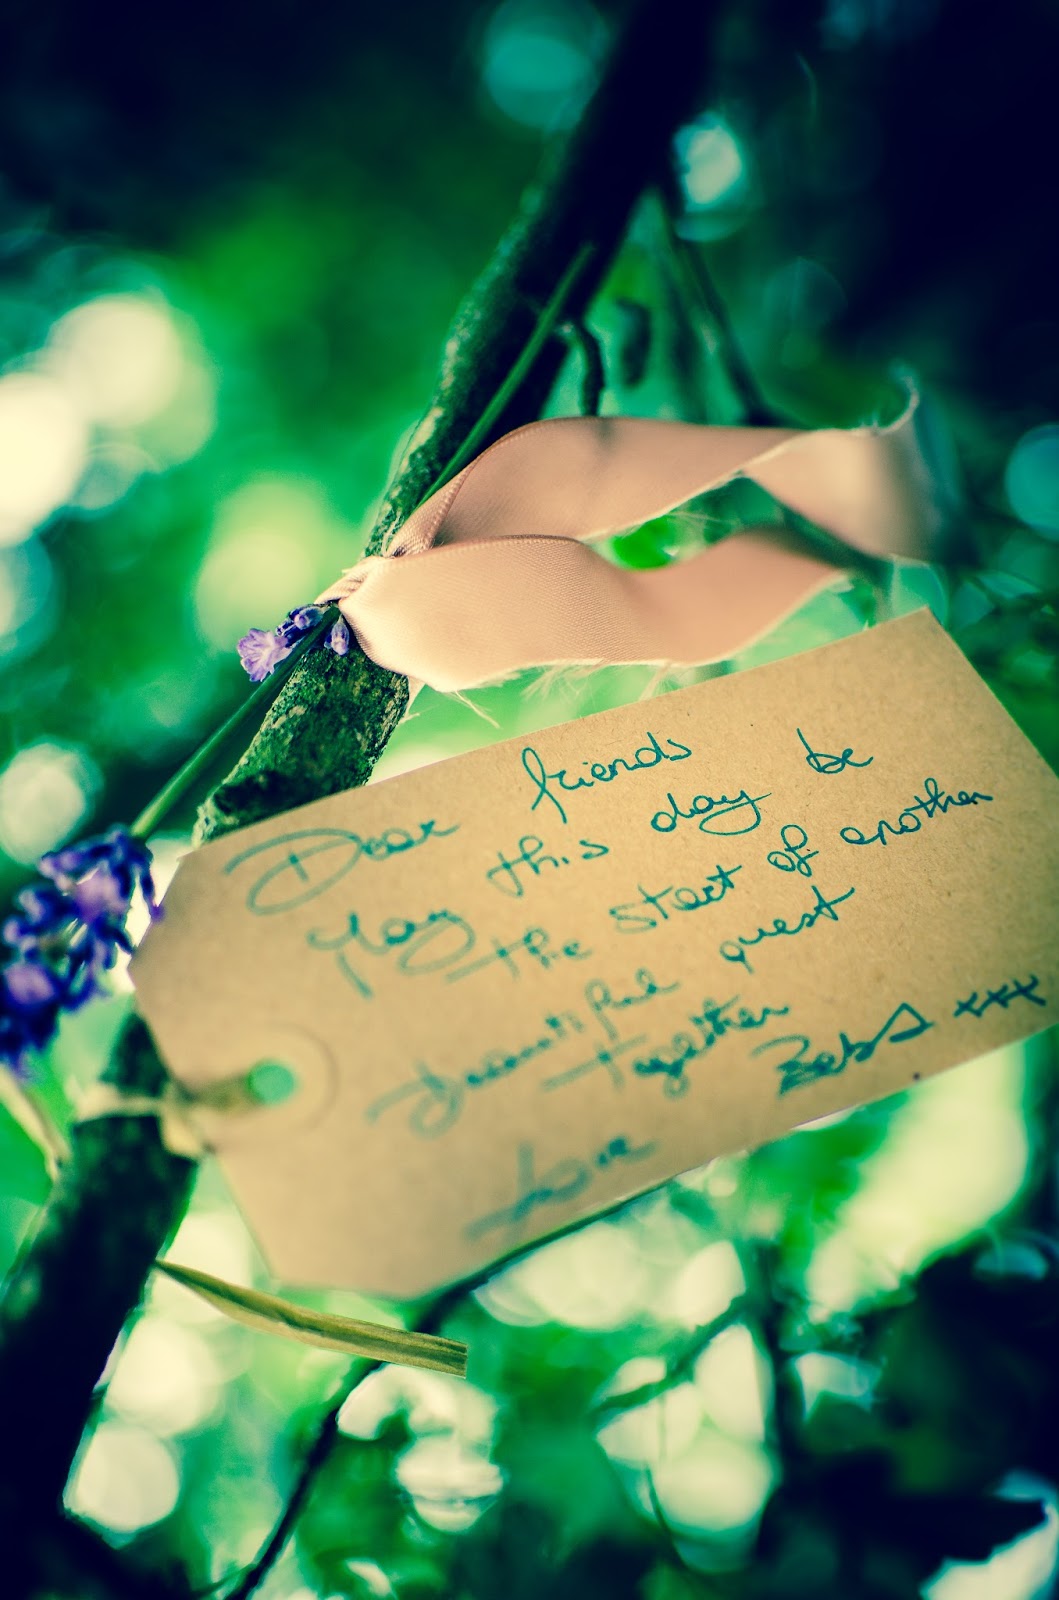 Dear friends
May this day be
the start of another
beautiful quest
together
Love Bebs xxx